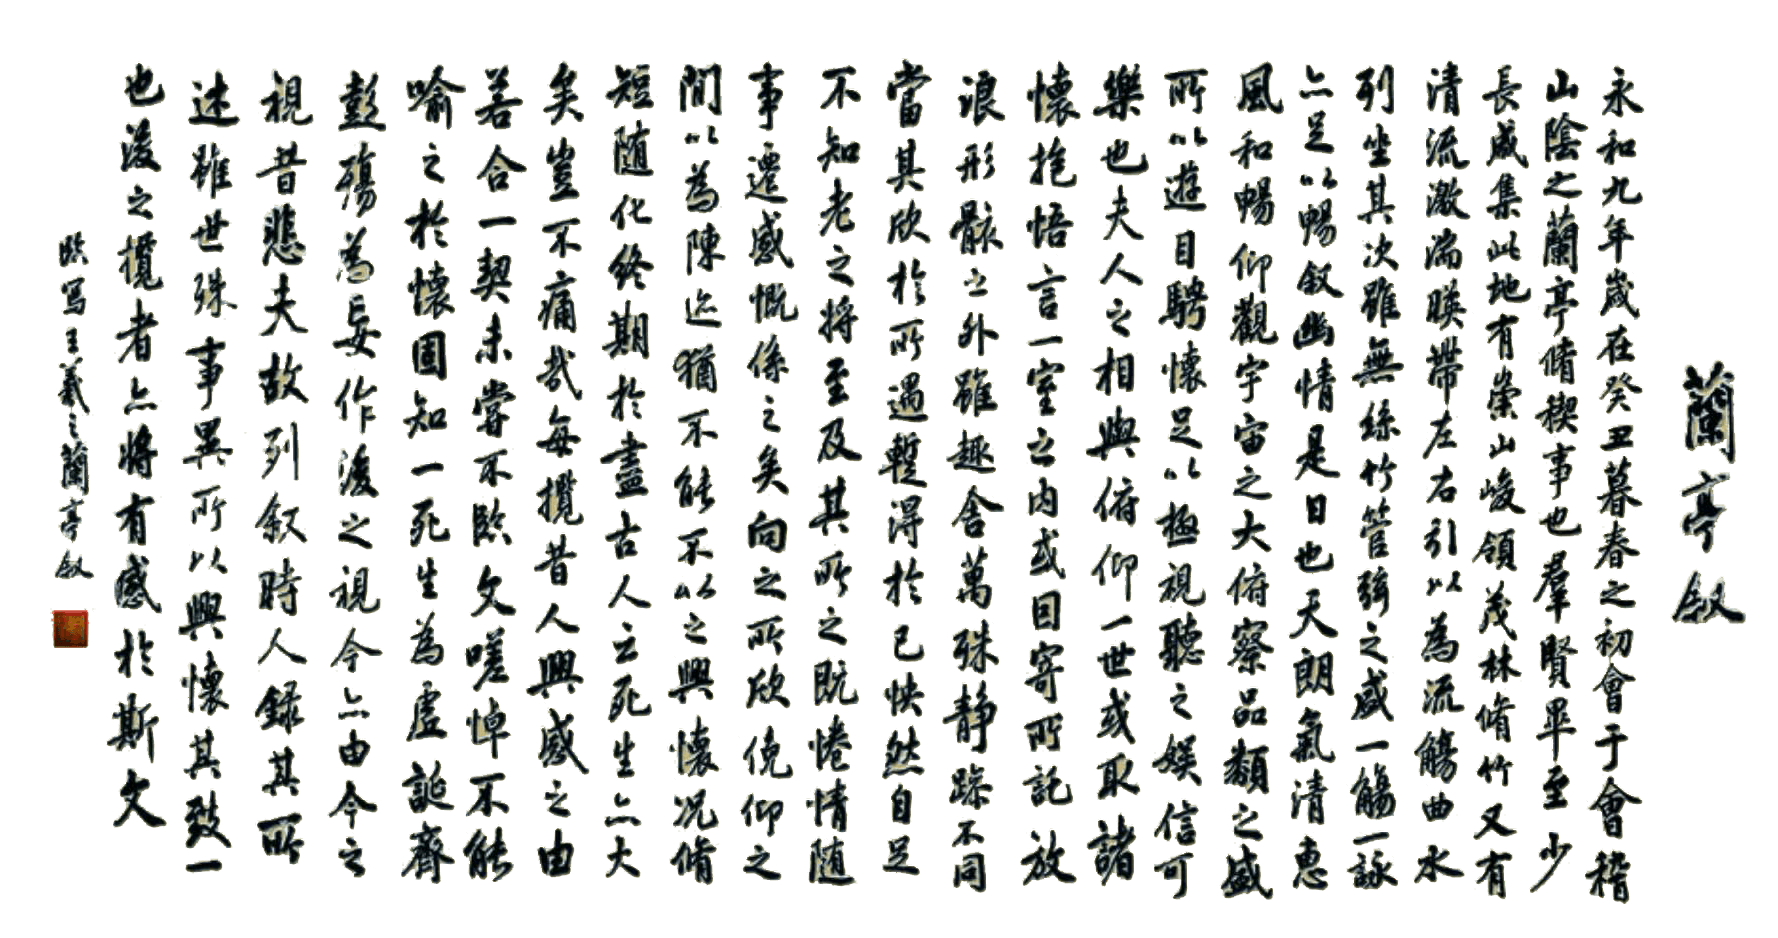 蘭亭敘
永和九年歲在癸丑暮春之初會于會稽
山陰之蘭亭脩稧事也羣賢畢至少
長咸集此地有崇山峻領茂林脩竹又有
清流激湍暎帶左右引以為流觴曲水
列坐其次雖無絲竹管弦之盛一觴一詠
亦足以暢敘幽情是日也天朗氣清惠
風和暢仰觀宇宙之大俯察品類之盛
所以遊目騁懷足以極視聽之娛信可
樂也夫人之相與俯仰一世或取諸
懷抱悟言一室之內或因寄所託放
浪形骸之外雖趣舍萬殊靜躁不同
當其欣於所遇暫得於己怏然自足
不知老之將至及其所之既惓情隨
事遷感慨係之矣向之所欣俛仰之
間以為陳迹猶不能不以之興懷況脩
短隨化終期於盡古人云死生亦大
矣豈不痛哉每攬昔人興感之由
若合一契未嘗不臨文嗟悼不能
喻之於懷固知一死生為虛誕齊
彭殤為妄作後之視今亦由今之
視昔悲夫故列敘時人錄其所
述雖世殊事異所以興懷其致一
也後之攬者亦將有感於斯文
臨写王羲之蘭亭敘